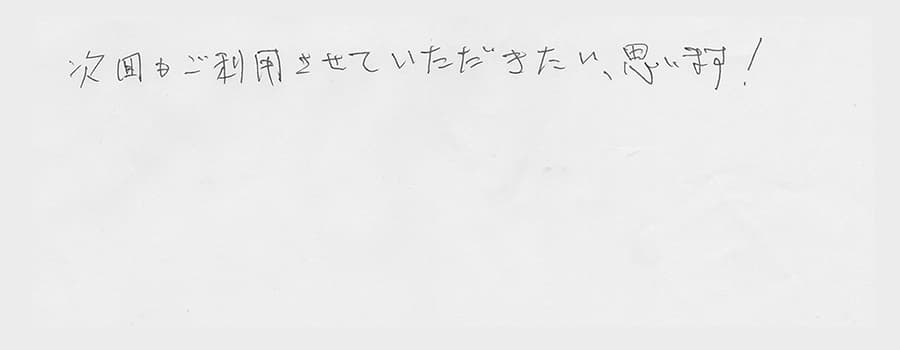 次回もご利用させていただきたい、思います!